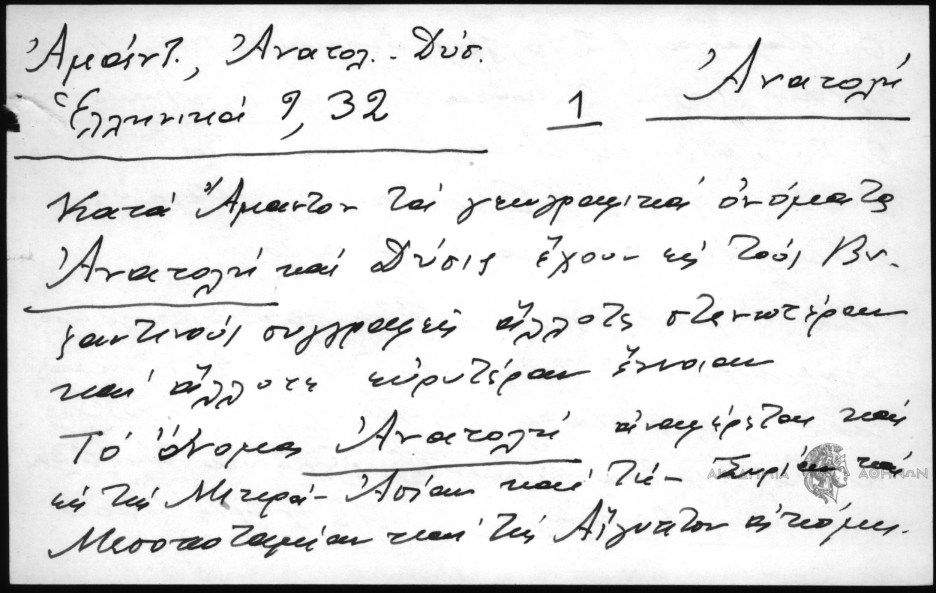 Ἀμάντ., Ἀνατολ. - Δύσ.
Ἑλληνικά 9, 32
1
Ἀνατολή
Κατά Ἄμαντον τά γεωγραφικά ὀνόματα
Ἀνατολή καί Δύσις ἔχουν εἰς τούς Βυ-
ζαντινούς συγγραφεῖς ἄλλοτε στενωτέραν
καί ἄλλοτε εὐρυτέραν ἔννοιαν
Τό ὄνομα Ἀνατολή ἀναφέρεται καί
εἰς τήν Μικρά- Ἀσίαν καί τή- Συρίαν καί
Μεσοποταμίαν καί τήν Αἴγυπτον ἀκόμη.
ΑΚΑΔΗΜΙΑ ΑΘΗΝΩΝ